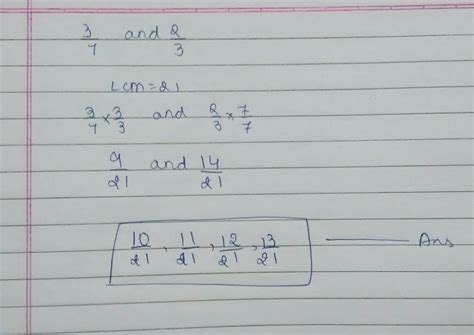 3/7 and 2/3
Lcm = 21
3/7 × 3/3 and 2/3 × 7/7
9/21 and 14/21
10/21, 11/21, 12/21, 13/21 —— Ans